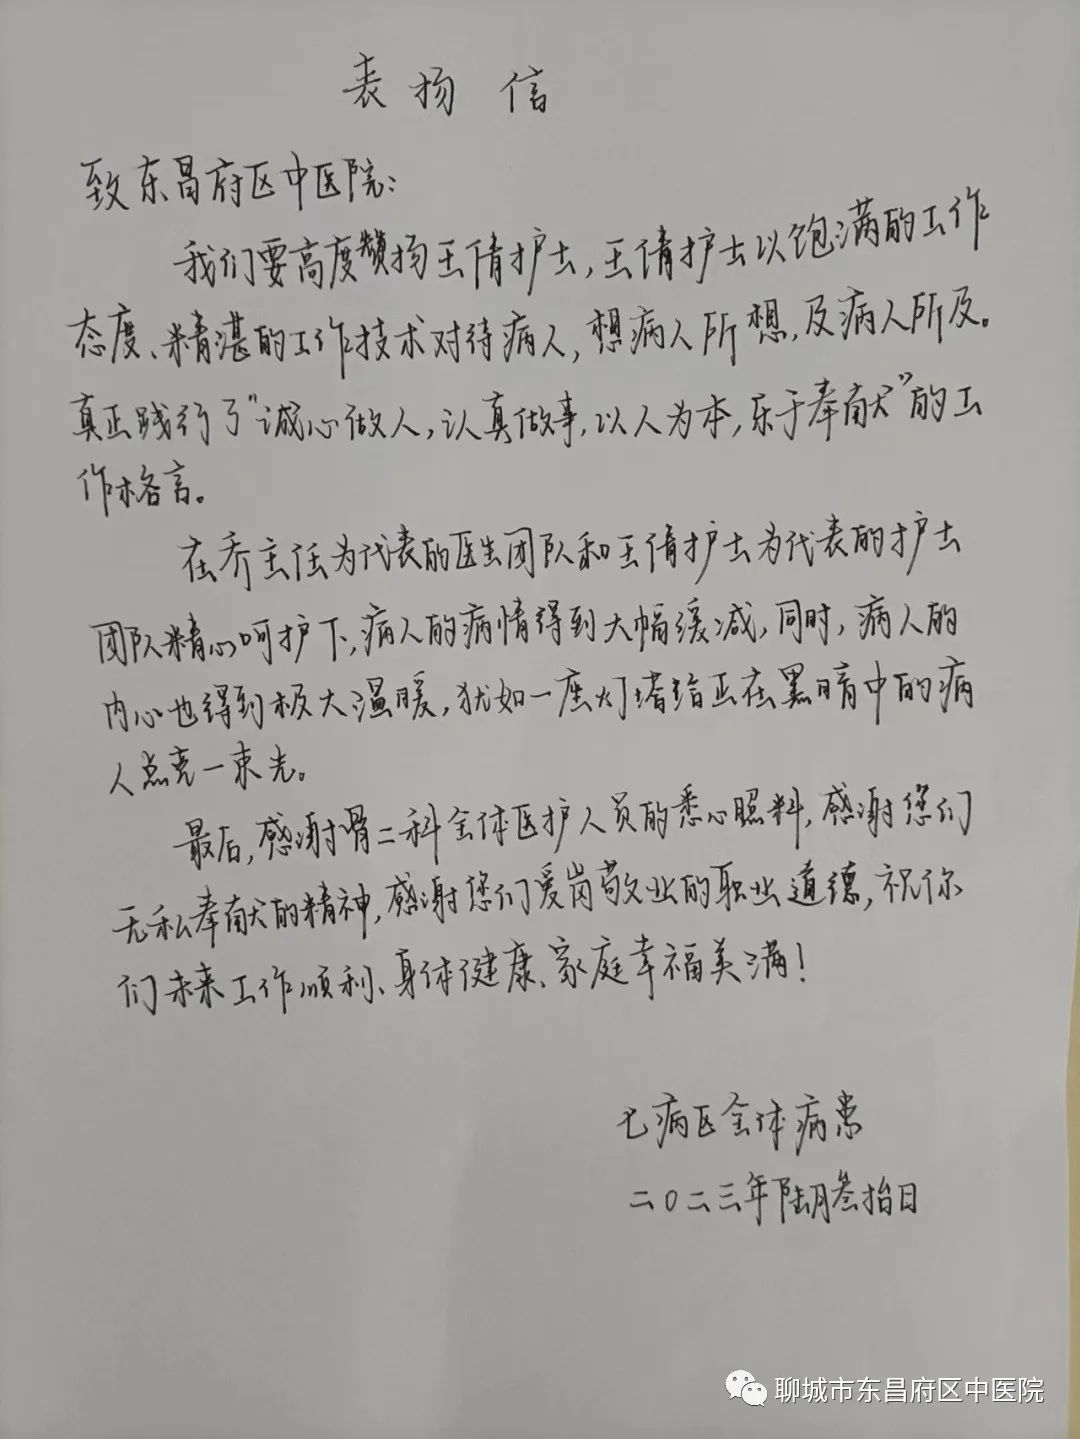 表扬信
致东昌府区中医院：
我们要高度赞扬王倩护士，王倩护士以饱满的工作
态度、精湛的工作技术对待病人，想病人所想，及病人所及。
真正践行了“诚心做人，认真做事，以人为本，乐于奉献”的工
作格言。
在乔主任为代表的医生团队和王倩护士为代表的护士
团队精心呵护下，病人的病情得到大幅缓减，同时，病人的
内心也得到极大温暖，犹如一座灯塔给正在黑暗中的病
人点亮一束光。
最后，感谢骨二科全体医护人员的悉心照料，感谢您们
无私奉献的精神，感谢您们爱岗敬业的职业道德，祝你
们未来工作顺利、身体健康、家庭幸福美满！
七病区全体病患
二〇二三年陆月叁拾日
聊城市东昌府区中医院